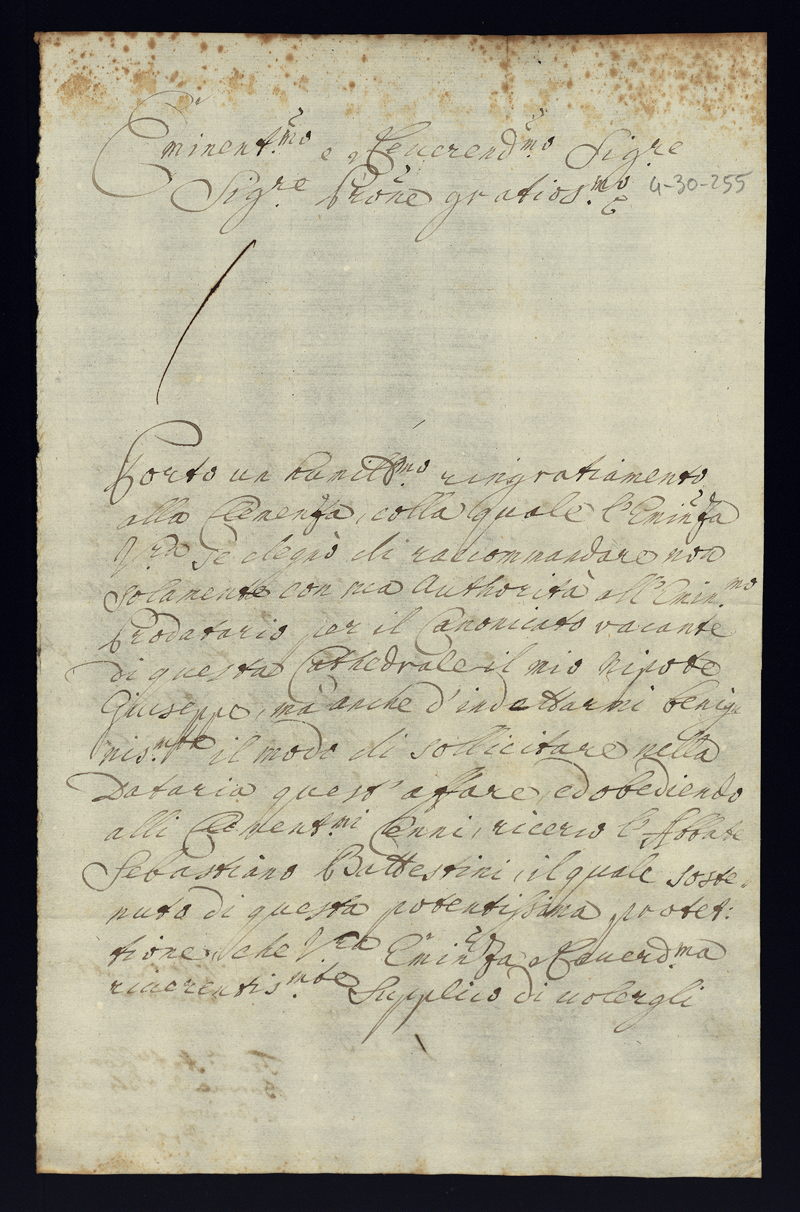 Eminent.mo e Reverend.mo Sig.re
Sig.re Prone gratios.mo
4-30-255
Porto un humil.mo ringratiamento
alla Clemenza, colla quale l'Eminza
V.ra se degnò di raccommandare non
solamente con sua Authorità all'Emin.mo
Prodatario per il Canonicato vacante
di questa Cathedrale il mio Nipote
Giuseppe, mà anche d'indettarmi benig
nis.mte il modo di sollicitare nella
Dataria quest'affare, ed obediendo
alli Clement.mi Cenni, ricerco l'Abbate
Sebastiano Battestini, il quale soste-
nuto di questa potentissima protet:
tione, che V.ra Eminza Reverd.ma
riverentis.mte Supplico di volergli